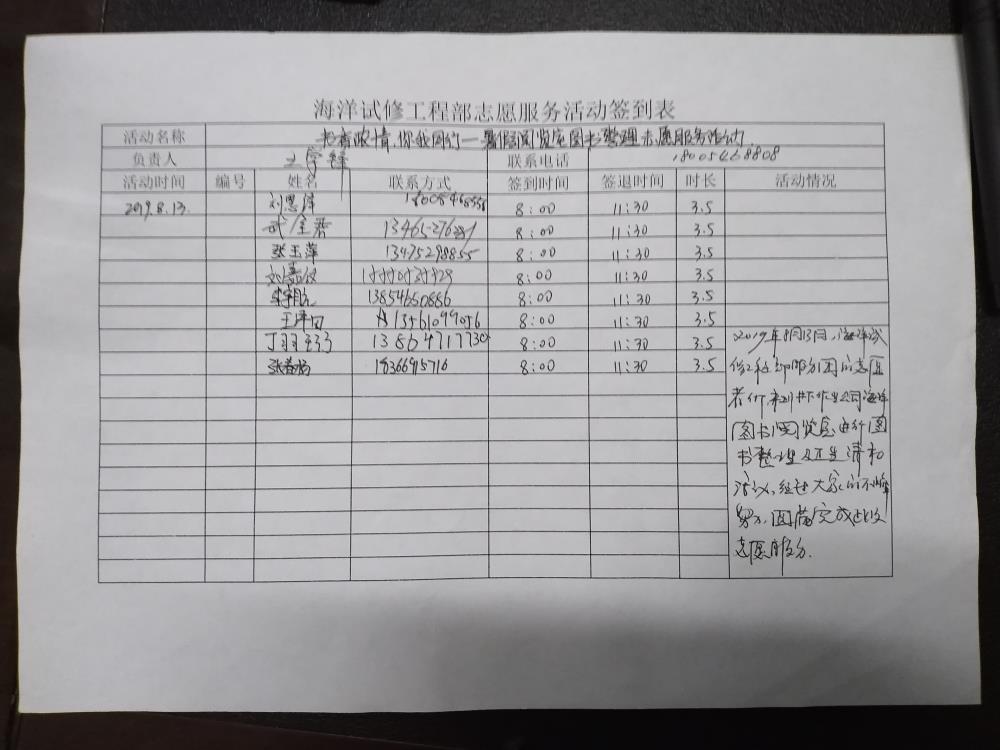 海洋试修工程部志愿服务活动签到表
活动名称 书香浓情,你我同行—暑假阅览室图书整理志愿服务活动
负责人 联系电话 18005468808
活动时间 编号 姓名 联系方式 签到时间 签退时间 时长 活动情况
2019.8.13. 刘思泽 8:00 11:30 3.5
8:00 11:30 3.5
张玉萍 13475298855 8:00 11:30 3.5
8:00 11:30 3.5
13854650886 8:00 11:30 3.5
13561099056 8:00 11:30 3.5
13864717730 8:00 11:30 3.5
张春杨 18366915716 8:00 11:30 3.5
2019年8月13日,海洋试
修工程部服务团的志愿
者们,来到井下作业公司海洋
图书阅览室进行图
书整理及卫生清扫
活动,经过大家的不懈
努力,圆满完成此次
志愿服务.